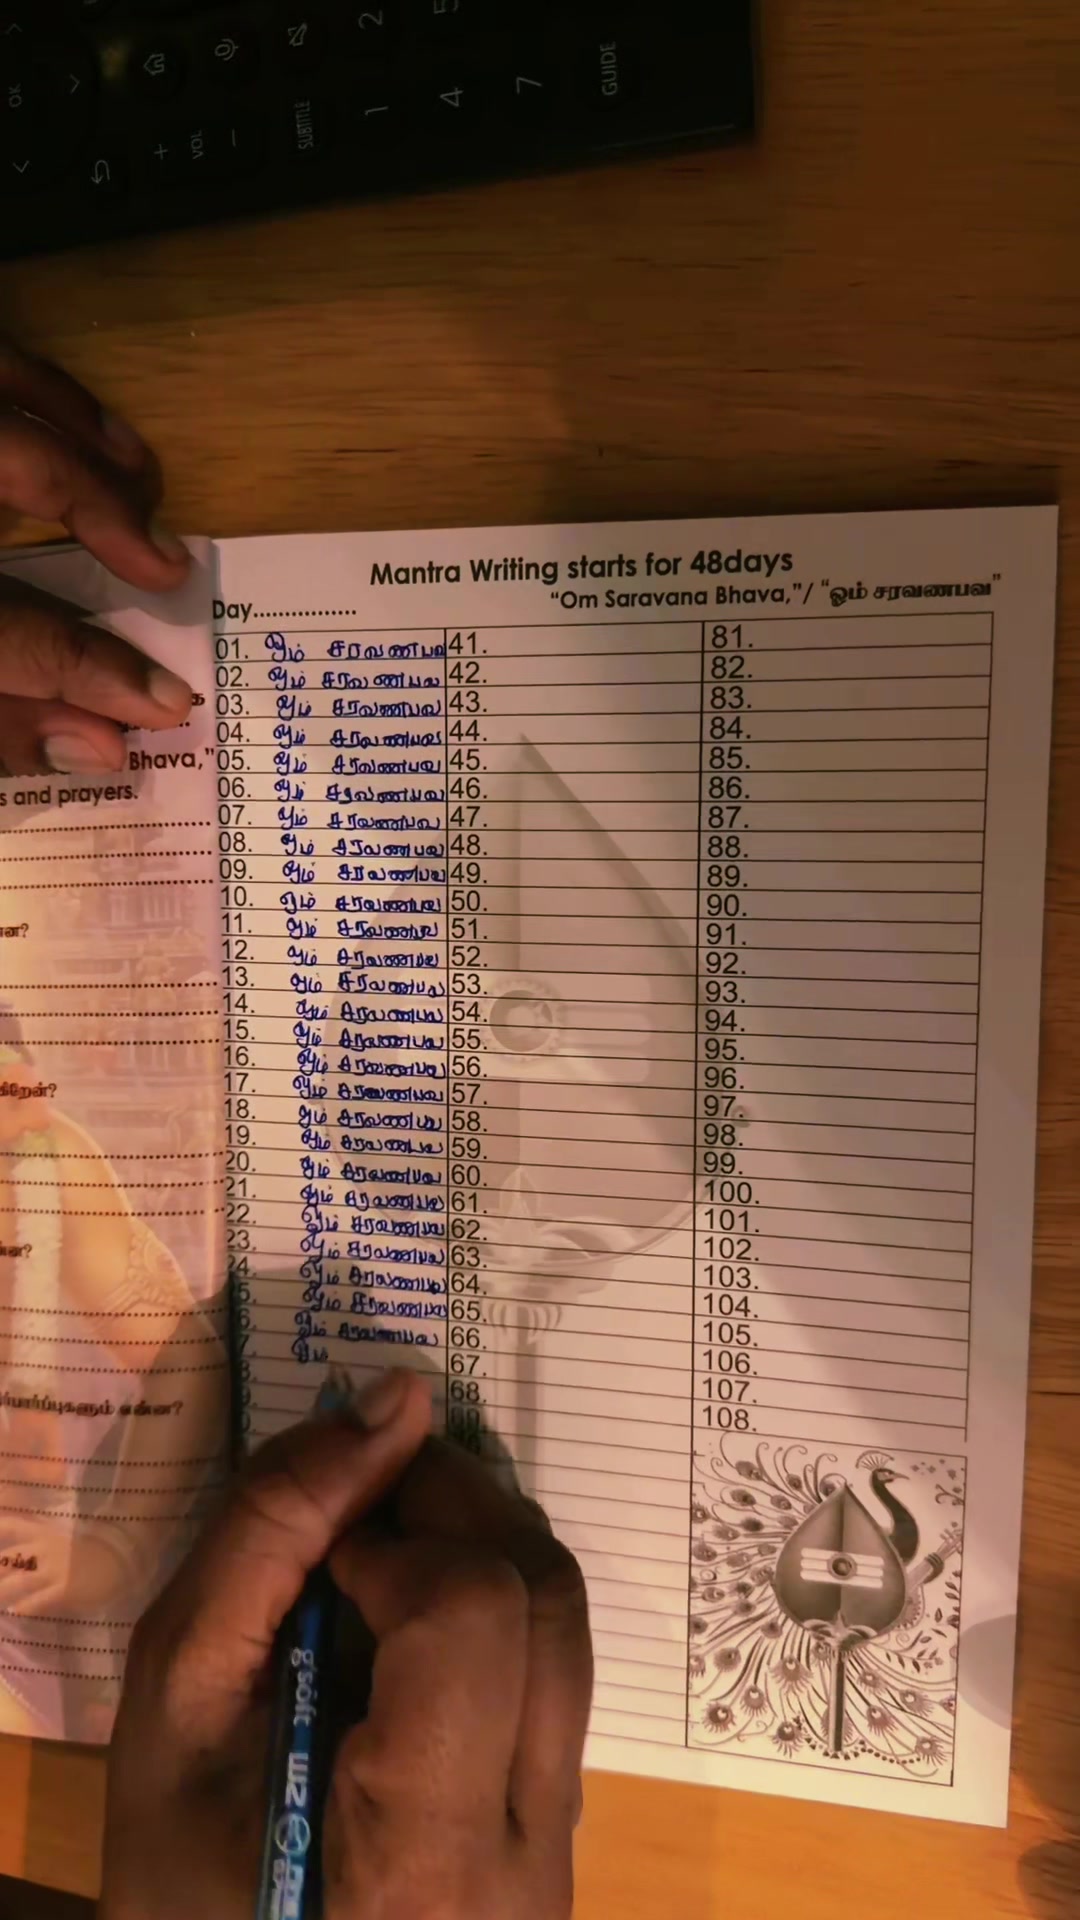 OK
VOL
SUBTITLE
1
2
4
5
7
GUIDE
Mantra Writing starts for 48days
Day...............
"Om Saravana Bhava,"/ "ஓம் சரவணபவ"
01. ஓம் சரவணபவ 41. 81.
02. ஓம் சரவணபவ 42. 82.
03. ஓம் சரவணபவ 43. 83.
04. ஓம் சரவணபவ 44. 84.
05. ஓம் சரவணபவ 45. 85.
06. ஓம் சரவணபவ 46. 86.
07. ஓம் சரவணபவ 47. 87.
08. ஓம் சரவணபவ 48. 88.
09. ஓம் சரவணபவ 49. 89.
10. ஓம் சரவணபவ 50. 90.
11. ஓம் சரவணபவ 51. 91.
12. ஓம் சரவணபவ 52. 92.
13. ஓம் சரவணபவ 53. 93.
14. ஓம் சரவணபவ 54. 94.
15. ஓம் சரவணபவ 55. 95.
16. ஓம் சரவணபவ 56. 96.
17. ஓம் சரவணபவ 57. 97.
18. ஓம் சரவணபவ 58. 98.
19. ஓம் சரவணபவ 59. 99.
20. ஓம் சரவணபவ 60. 100.
21. ஓம் சரவணபவ 61. 101.
22. ஓம் சரவணபவ 62. 102.
23. ஓம் சரவணபவ 63. 103.
24. ஓம் சரவணபவ 64. 104.
5. ஓம் சரவணபவ 65. 105.
6. ஓம் சரவணபவ 66. 106.
7. ஓம் 67. 107.
68. 108.
Bhava,"
s and prayers.
கிறேன்?
ர்பார்ப்புகளும் என்ன?